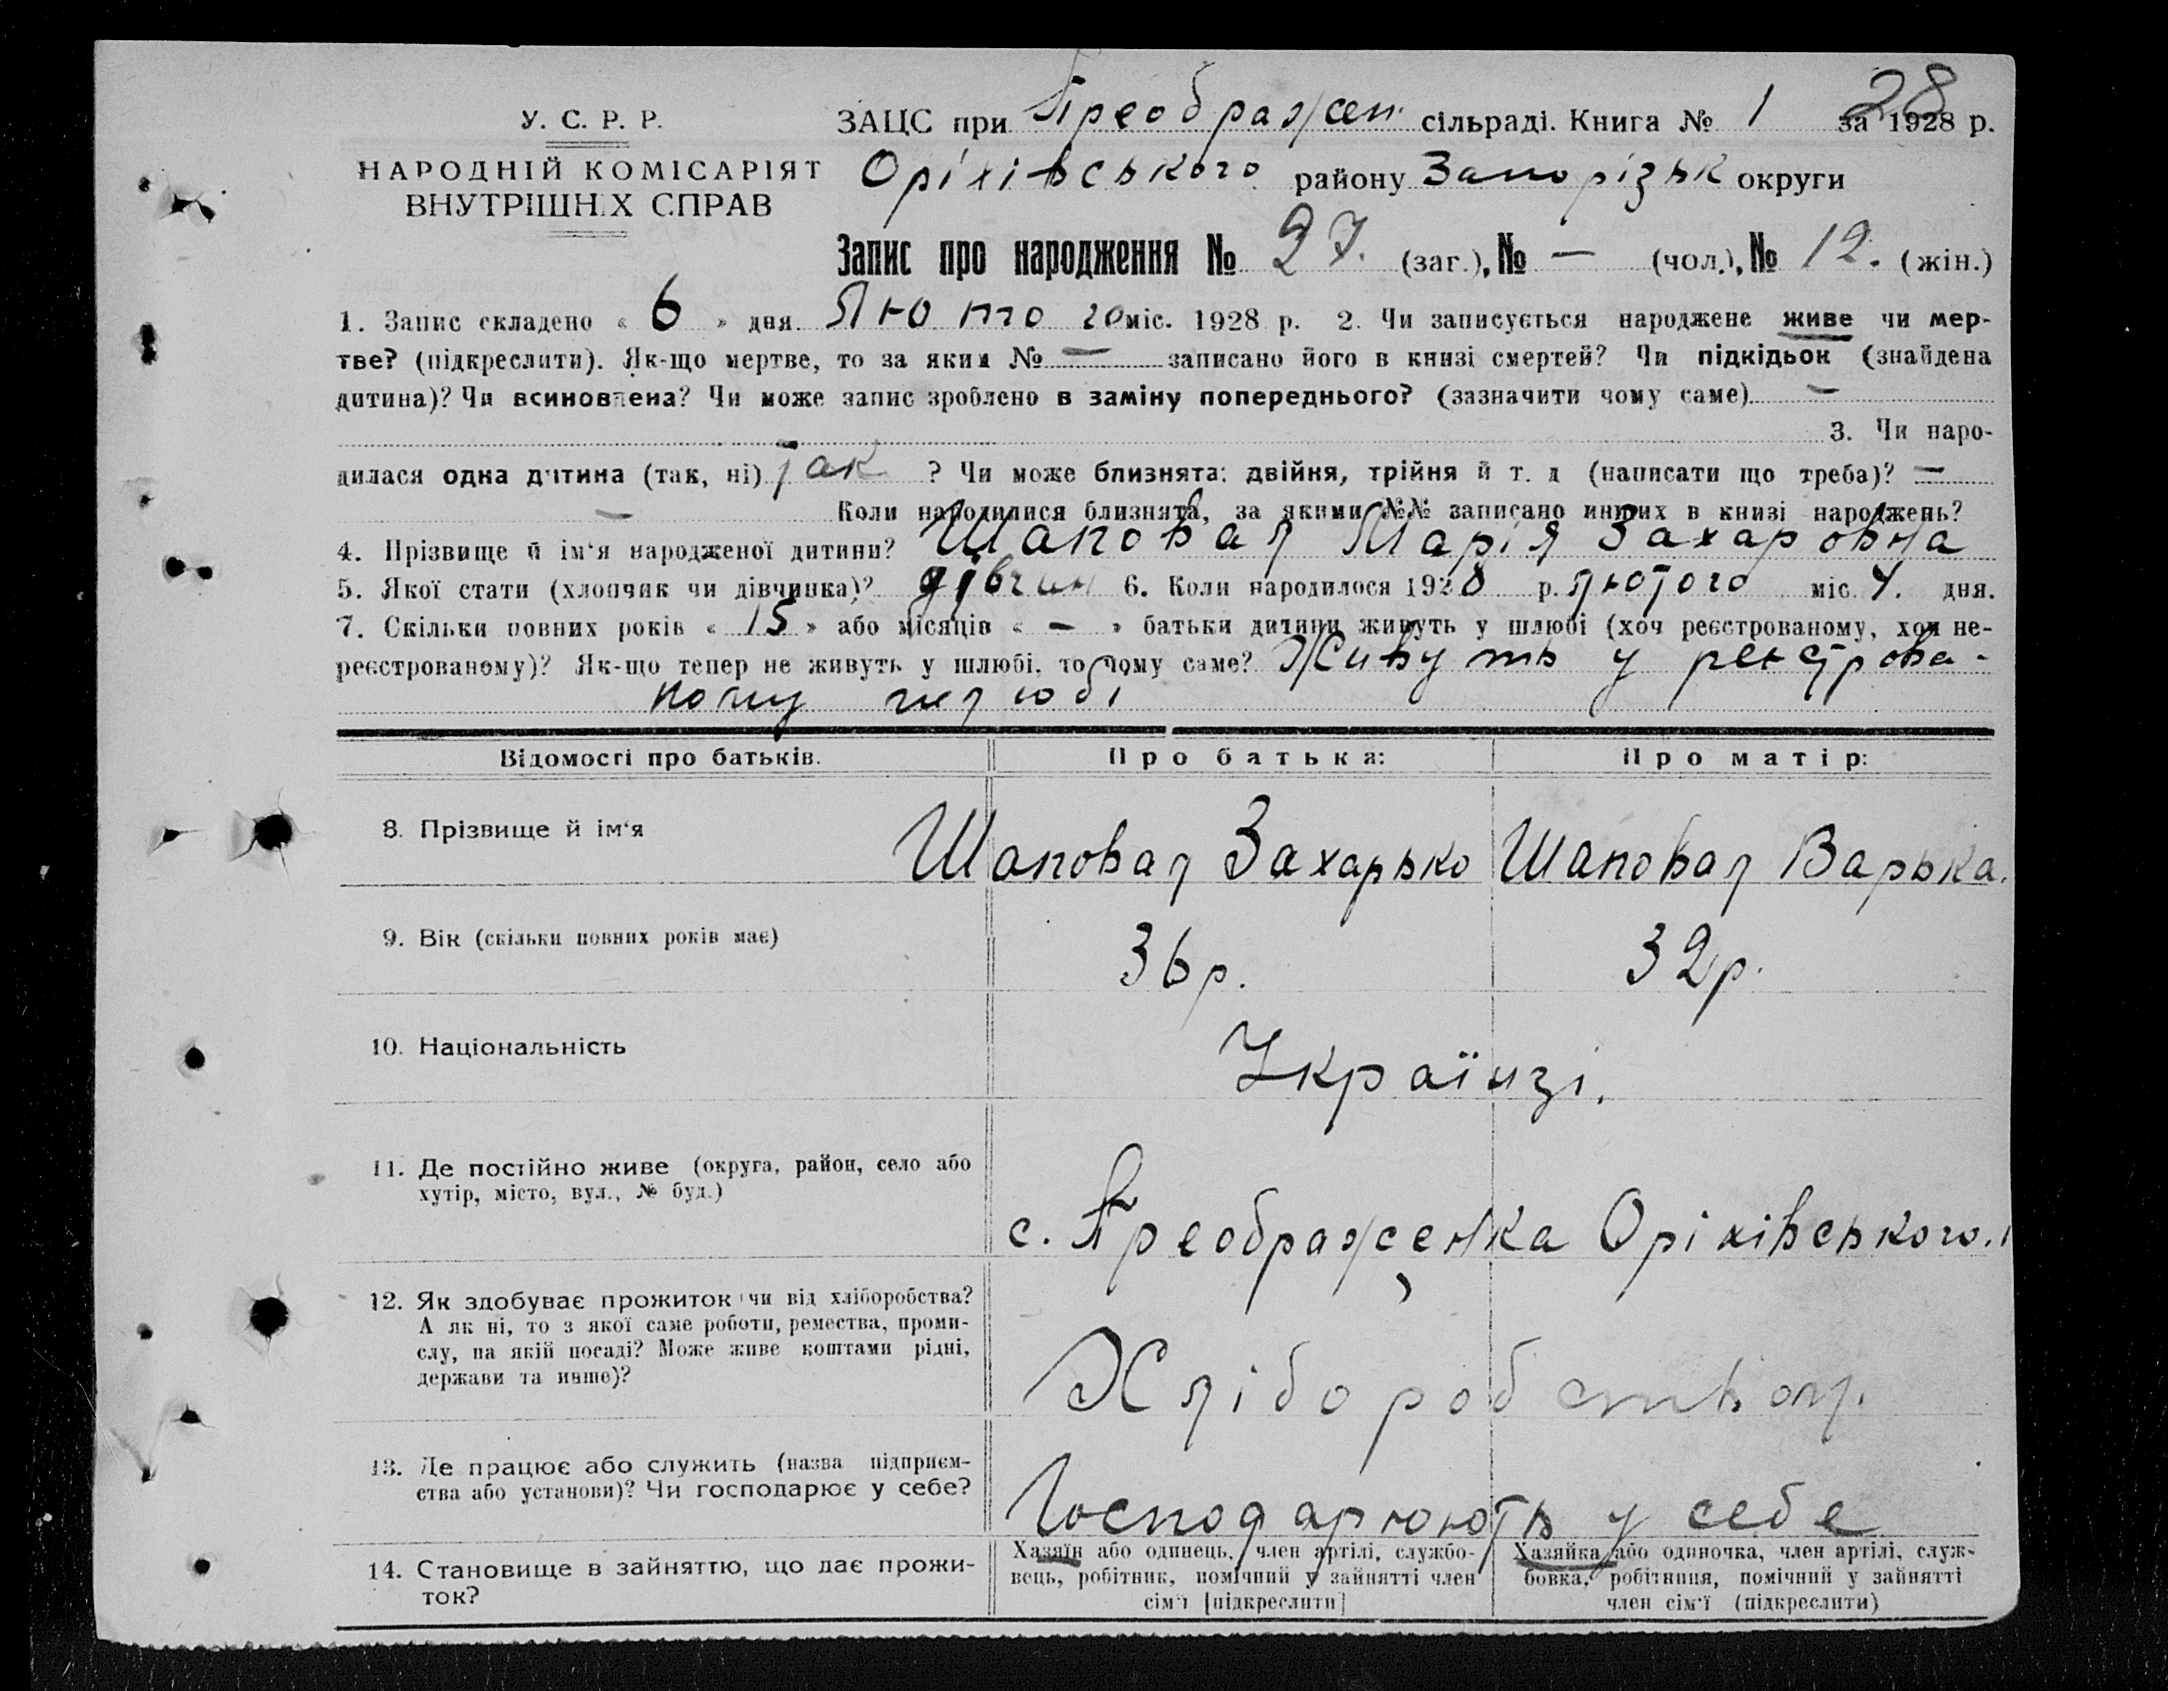 28
У. С. Р. Р.
НАРОДНІЙ КОМІСАРІЯТ
ВНУТРІШНІХ СПРАВ
ЗАЦС при Преображен. сільраді. Книга № 1 за 1928 р.
Оріхівського району Запорізьк округи
Запис про народження № 27. (заг.), № — (чол.), № 12. (жін.)
1. Запис складено « 6 » дня Лютого міс. 1928 р. 2. Чи записується народжене живе чи мер-
тве? (підкреслити). Як-що мертве, то за яким № — записано його в книзі смертей? Чи підкідьок (знайдена
дитина)? Чи всиновлена? Чи може запис зроблено в заміну попереднього? (зазначити чому саме) —
3. Чи наро-
дилася одна дитина (так, ні) так ? Чи може близнята: двійня, трійня й т. д (написати що треба)? —
— Коли народилися близнята, за якими №№ записано инших в книзі народжень?
4. Прізвище й ім'я народженої дитини? Шаповал Марія Захаровна
5. Якої стати (хлопчик чи дівчинка)? дівчин 6. Коли народилося 1928 р. лютого міс. 4. дня.
7. Скільки повних років « 15 » або місяців « — » батьки дитини живуть у шлюбі (хоч реєстрованому, хоч не-
реєстрованому)? Як-що тепер не живуть у шлюбі, то чому саме? Живуть у реєстрова-
ному шлюбі
Відомості про батьків. Про батька: Про матір:
8. Прізвище й ім'я Шаповал Захарько Шаповал Варька.
9. Вік (скільки повних років має) 36 р. 32 р.
10. Національність Українці.
11. Де постійно живе (округа, район, село або
хутір, місто, вул., № буд.)
с. Преображенка Оріхівського.
12. Як здобуває прожиток чи від хліборобства?
А як ні, то з якої саме роботи, ремества, проми-
слу, на якій посаді? Може живе коштами рідні,
держави та инше)?
Хліборобством.
13. Де працює або служить (назва підприєм-
ства або установи)? Чи господарює у себе?
Господарюють у себе
14. Становище в зайняттю, що дає прожи-
ток?
Хазяїн або одинець, член артілі, службо-
вець, робітник, помічний у зайнятті член
сім'ї [підкреслити]
Хазяйка або одиночка, член артілі, служ-
бовка, робітниця, помічний у зайнятті
член сім'ї (підкреслити)